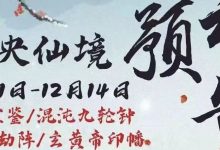 央仙境 预
1日-12月14日
鉴/混沌九轮钟
劫阵/玄黄帝印幡